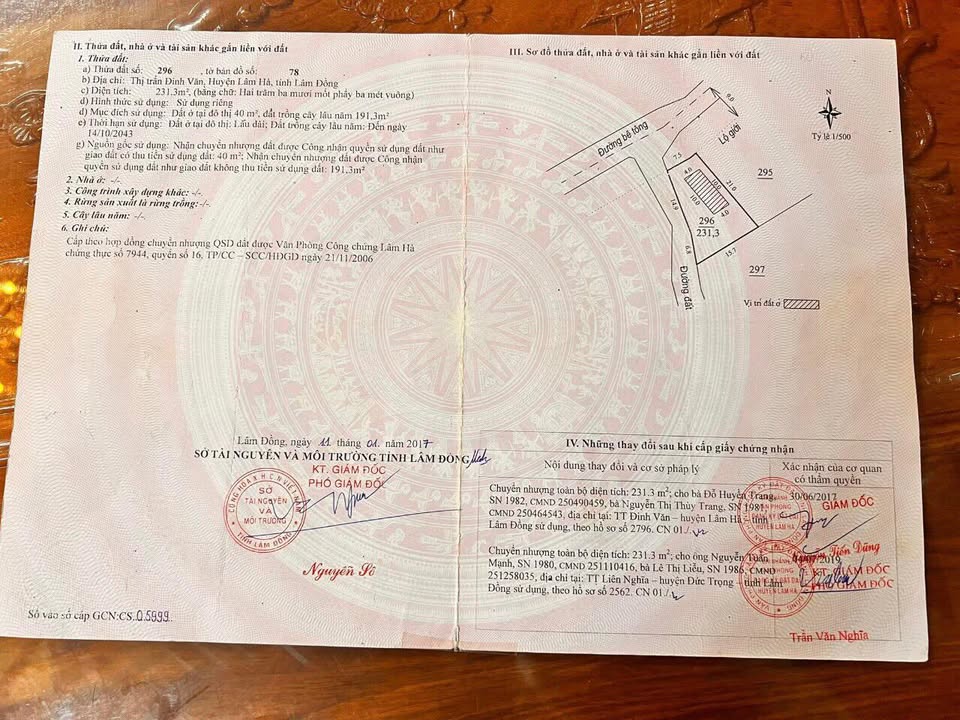 II. Thửa đất, nhà ở và tài sản khác gắn liền với đất
1. Thửa đất:
a) Thửa đất số: 296 , tờ bản đồ số: 78
b) Địa chỉ: Thị trấn Đinh Văn, Huyện Lâm Hà, tỉnh Lâm Đồng
c) Diện tích: 231.3m², (bằng chữ: Hai trăm ba mươi mốt phẩy ba mét vuông)
d) Hình thức sử dụng: Sử dụng riêng
đ) Mục đích sử dụng: Đất ở tại đô thị 40 m², đất trồng cây lâu năm 191,3m²
e) Thời hạn sử dụng: Đất ở tại đô thị: Lâu dài; Đất trồng cây lâu năm: Đến ngày
14/10/2043
g) Nguồn gốc sử dụng: Nhận chuyển nhượng đất được Công nhận quyền sử dụng đất như
giao đất có thu tiền sử dụng đất: 40 m²; Nhận chuyển nhượng đất được Công nhận
quyền sử dụng đất như giao đất không thu tiền sử dụng đất: 191,3m²
2. Nhà ở: -/-
3. Công trình xây dựng khác: -/-
4. Rừng sản xuất là rừng trồng:-/-
5. Cây lâu năm: -/-
6. Ghi chú:
Cấp theo hợp đồng chuyển nhượng QSD đất được Văn Phòng Công chứng Lâm Hà
chứng thực số 7944, quyển số 16, TP/CC – SCC/HĐGD ngày 21/11/2006
Lâm Đồng, ngày 11 tháng 01 năm 2017
SỞ TÀI NGUYÊN VÀ MÔI TRƯỜNG TỈNH LÂM ĐỒNG
KT. GIÁM ĐỐC
PHÓ GIÁM ĐỐC
CỘNG HÒA X.H.C.N VIỆT NAM
SỞ
TÀI NGUYÊN
VÀ
MÔI TRƯỜNG
TỈNH LÂM ĐỒNG
Số vào sổ cấp GCN:CS.05999
III. Sơ đồ thửa đất, nhà ở và tài sản khác gắn liền với đất
N
Tỷ lệ 1/500
Đường bê tông
9.0
Lộ giới
7.5
295
4.0
10.0
21.0
10.0
4.0
14.9
296
231,3
6.8
15.7
297
Đường đất
Vị trí đất ở
IV. Những thay đổi sau khi cấp giấy chứng nhận
Nội dung thay đổi và cơ sở pháp lý
Xác nhận của cơ quan
có thẩm quyền
Chuyển nhượng toàn bộ diện tích: 231.3 m²; cho bà Đỗ Huyền Trang,
SN 1982, CMND 250490459, bà Nguyễn Thị Thùy Trang, SN 1981,
CMND 250464543, địa chỉ tại: TT Đinh Văn – huyện Lâm Hà – tỉnh
Lâm Đồng sử dụng, theo hồ sơ số 2796. CN 01./.
30/06/2017
GIÁM ĐỐC
Tiến Dũng
Chuyển nhượng toàn bộ diện tích: 231.3 m²; cho ông Nguyễn Tuấn
Mạnh, SN 1980, CMND 251110416, bà Lê Thị Liễu, SN 1986, CMND
251258035, địa chỉ tại: TT Liên Nghĩa – huyện Đức Trọng – tỉnh Lâm
Đồng sử dụng, theo hồ sơ số 2562. CN 01./.
2019
KT. GIÁM ĐỐC
PHÓ GIÁM ĐỐC
HUYỆN LÂM HÀ
Trần Văn Nghĩa